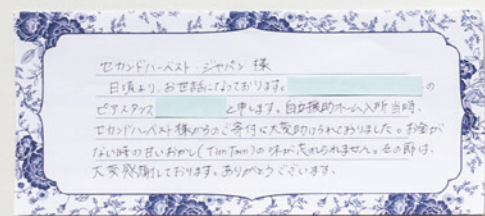 セカンドハーベスト・ジャパン 様
日頃より、お世話になっております。 の
ピアスタッフ と申します。自立援助ホーム入所当時、
セカンドハーベスト様からのご寄付に大変助けられておりました。お金が
ない時の甘いおかし(TimTam)の味が忘れられません。その節は、
大変感謝しております。ありがとうございます。